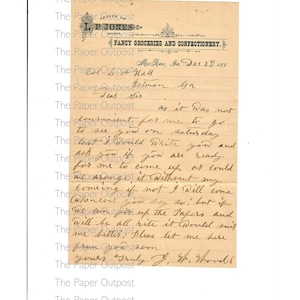 L. P. JONES
FANCY GROCERIES AND CONFECTIONERY.
McRae Ga Dec 3rd 188
Hall
Eastman Ga
Dear Sir
as it Was not
convenient for me to go
to see you on saturday
last I Would Write you and
ask you if you are ready
for me to come up or could
We arange it Without my
Comeing if not I Will come
Whenever you say so: but if
We can fix up the Papers and
Will be all rite it Would suit
me better: Pleas let me here
from you soon
yours Truly J. W. Woods
The Paper Outpost
The Paper Outpost
The Paper Outpost
The Paper Outpost
The Paper Outpost
The Paper Outpost
The Paper Outpost
The Paper Outpost
The Paper Outpost